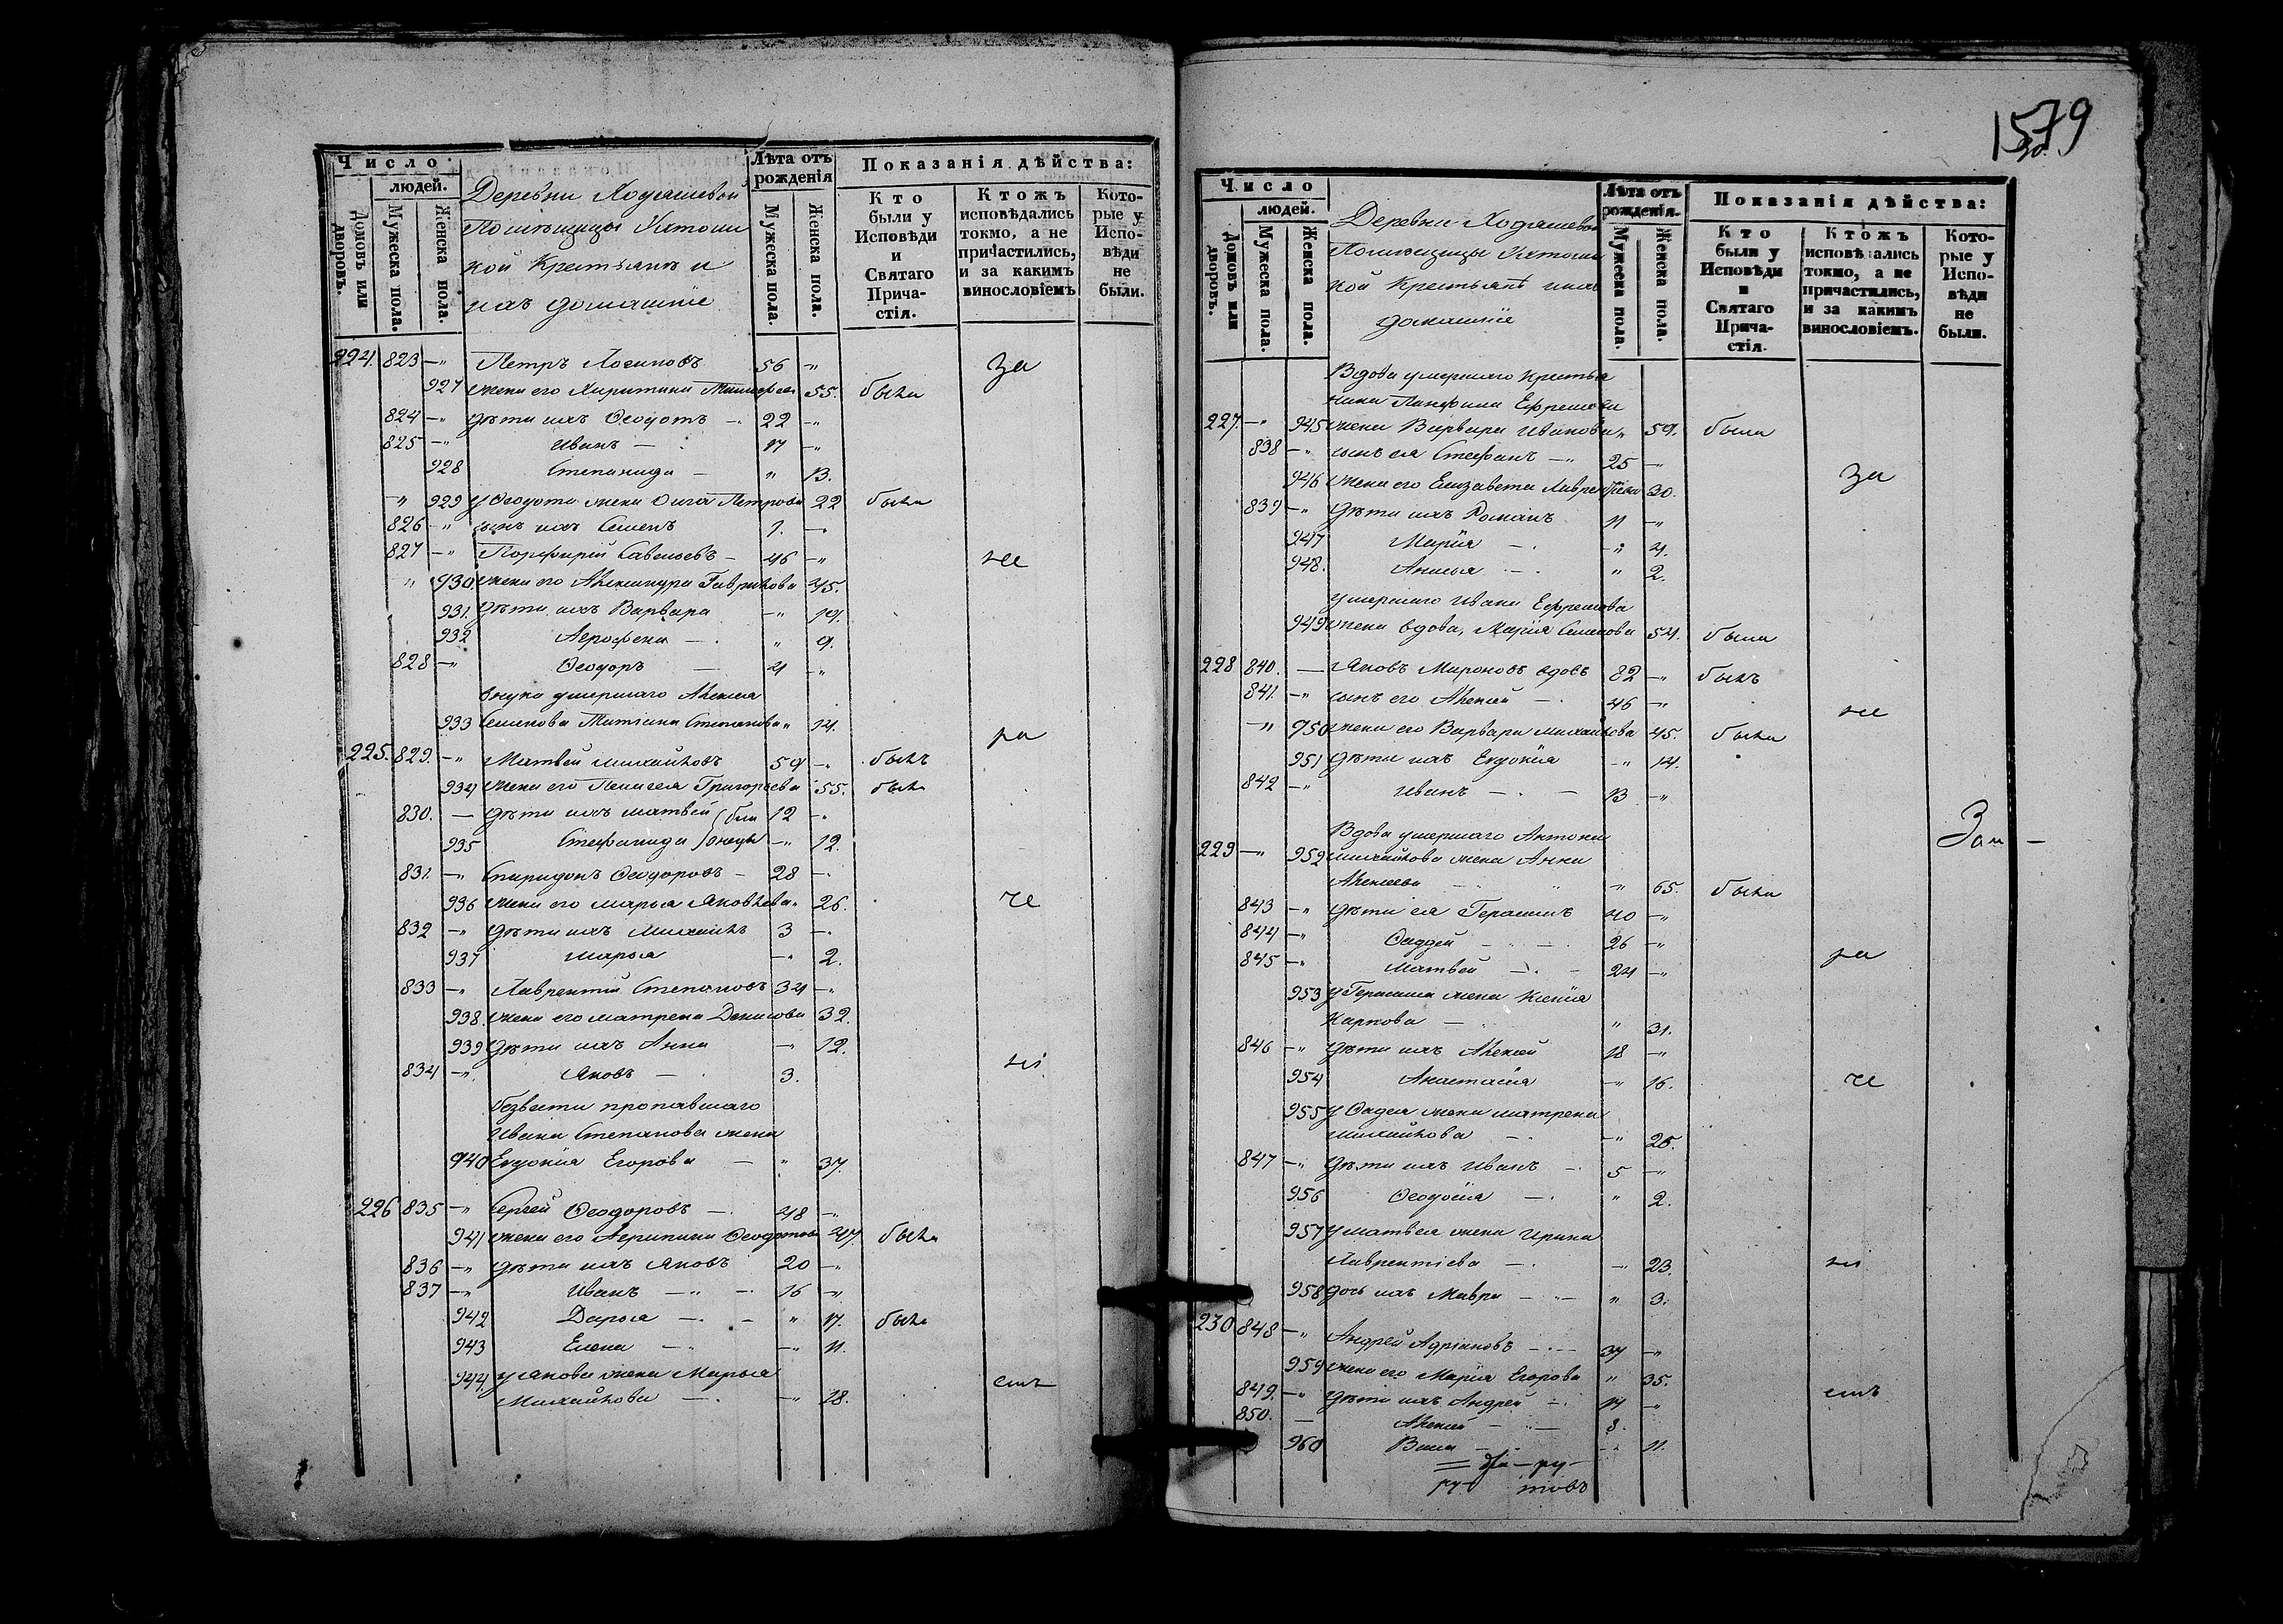 Число
людей.
Домовъ или дворовъ.
Мужеска пола.
Женска пола.
Деревни Ходяшевой
Помѣщицы Ухтом
кой Крестьянѣ и
ихъ домашніе
Лѣта отъ рожденія
Мужеска пола.
Женска пола.
Показанія дѣйства:
Кто были у Исповѣди и Святаго Причастія.
Ктожъ исповѣдались токмо, а не причастились, и за какимъ винословіемъ
Которые у Исповѣди не были.
224. 823 —" Петръ Іосиповъ 56 —" за
927 жена его Харитина 55. была
824 —" дѣти ихъ Ѳеодотъ — 22 —"
825 —" Иванъ — 17 —"
928 Степанида — " 13.
—" 929 у Ѳеодота жена Ольга Петрова 22 была
826 —" сынъ ихъ Семенъ 1. —"
827 —" Порфирій Савельевъ — 46 —" не
" 930. жена его Александра Гаврилова 45.
931 дѣти ихъ Варвара —" 14.
932 Агрофена — " 9.
828 —" Ѳеодоръ — 4 —"
внука умершаго Алексея
933 Семенова Татіана Степанова " 14.
ра
225. 829. —" Матвей Михайловъ 59 —" былъ
934 жена его Пелагея Григорьева 55. была
830. — дѣти ихъ Матвей 12 —"
935 Стефанида —" 12.
831. —" Спиридонъ Ѳеодоровъ — 28 —"
936 жена его Марья Яковлева " 26. че
832 —" дѣти ихъ Михаилъ 3 —"
937 Марья —" 2.
833 —" Лаврентій Степановъ 34 —"
938. жена его Матрена Денисова 32.
939 дѣти ихъ Анна —" 12.
834 —" Яковъ — 3. ні
безвести пропавшаго
Ивана Степанова жена
940 Евдокія Егорова — " 37.
226 835 —" Сергей Ѳеодоровъ — 48 —"
941 жена его Агрипина Ѳеодотова 47. была
836 —" дѣти ихъ Яковъ 20 —"
837 —" Иванъ —" — 16 —"
942 Дарья — — " 17. была
943 Елена — —" 11.
944 у Якова жена Марья
Михайлова — —" 18. емъ
1579
Число
людей.
Домовъ или дворовъ.
Мужеска пола.
Женска пола.
Деревни Ходяшевой
Помѣщицы Ухтом
кой Крестьянѣ ихъ
домашніе
Лѣта отъ рожденія.
Мужеска пола.
Женска пола.
Показанія дѣйства:
Кто были у Исповѣди и Святаго Причастія.
Ктожъ исповѣдались токмо, а не причастились, и за какимъ винословіемъ.
Которые у Исповѣди не были.
Вдова умершаго Крестья
нина Панфила Ефремова
227. —" 945 жена Варвара Иванова " 59. была
838 —" сынъ ея Стефанъ —" 25 —"
946 жена его Елизавета Лаврентіева 30. за
839 —" дѣти ихъ Романъ 11 —"
947 Марія — —" 4.
948. Анисья — " 2.
умершаго Ивана Ефремова
949 жена вдова, Марія Семенова 54. была
228 840. — Яковъ Мироновъ вдовъ 82 —" былъ
841. —" сынъ его Алексей — 46 —" не
—" 950 жена его Варвара Михайлова 45. была
951 дѣти ихъ Евдокія —" 14.
842 —" Иванъ — — 13 —"
Вдова умершаго Антона
229 —" 952 Михайлова жена Анна
Алексеева — —" 65. была
843 —" дѣти ея Герасимъ 40 —"
844 —" Ѳаддей — — 26 —"
845 —" Матвей — — 24 —" ра
953 у Герасима жена Ксенія
Карпова — " 31.
846 —" дѣти ихъ Алексей 18 —"
954 Анастасія —" 16. че
955 у Ѳадея жена Матрена
Михайлова — —" 25.
847 —" дѣти ихъ Иванъ — 5 —"
956 Ѳеодосія — " 2.
957 у Матвея жена Ирина
Лаврентіева — —" 23. ні
958 дочь ихъ Мавра — " — " 3.
230 848 —" Андрей Адріановъ — 37 —"
959 жена его Марія Егорова " 35.
849. —" дѣти ихъ Андрей — 14 —" емъ
850. — Алексей — " — 8.
960 — — 11.